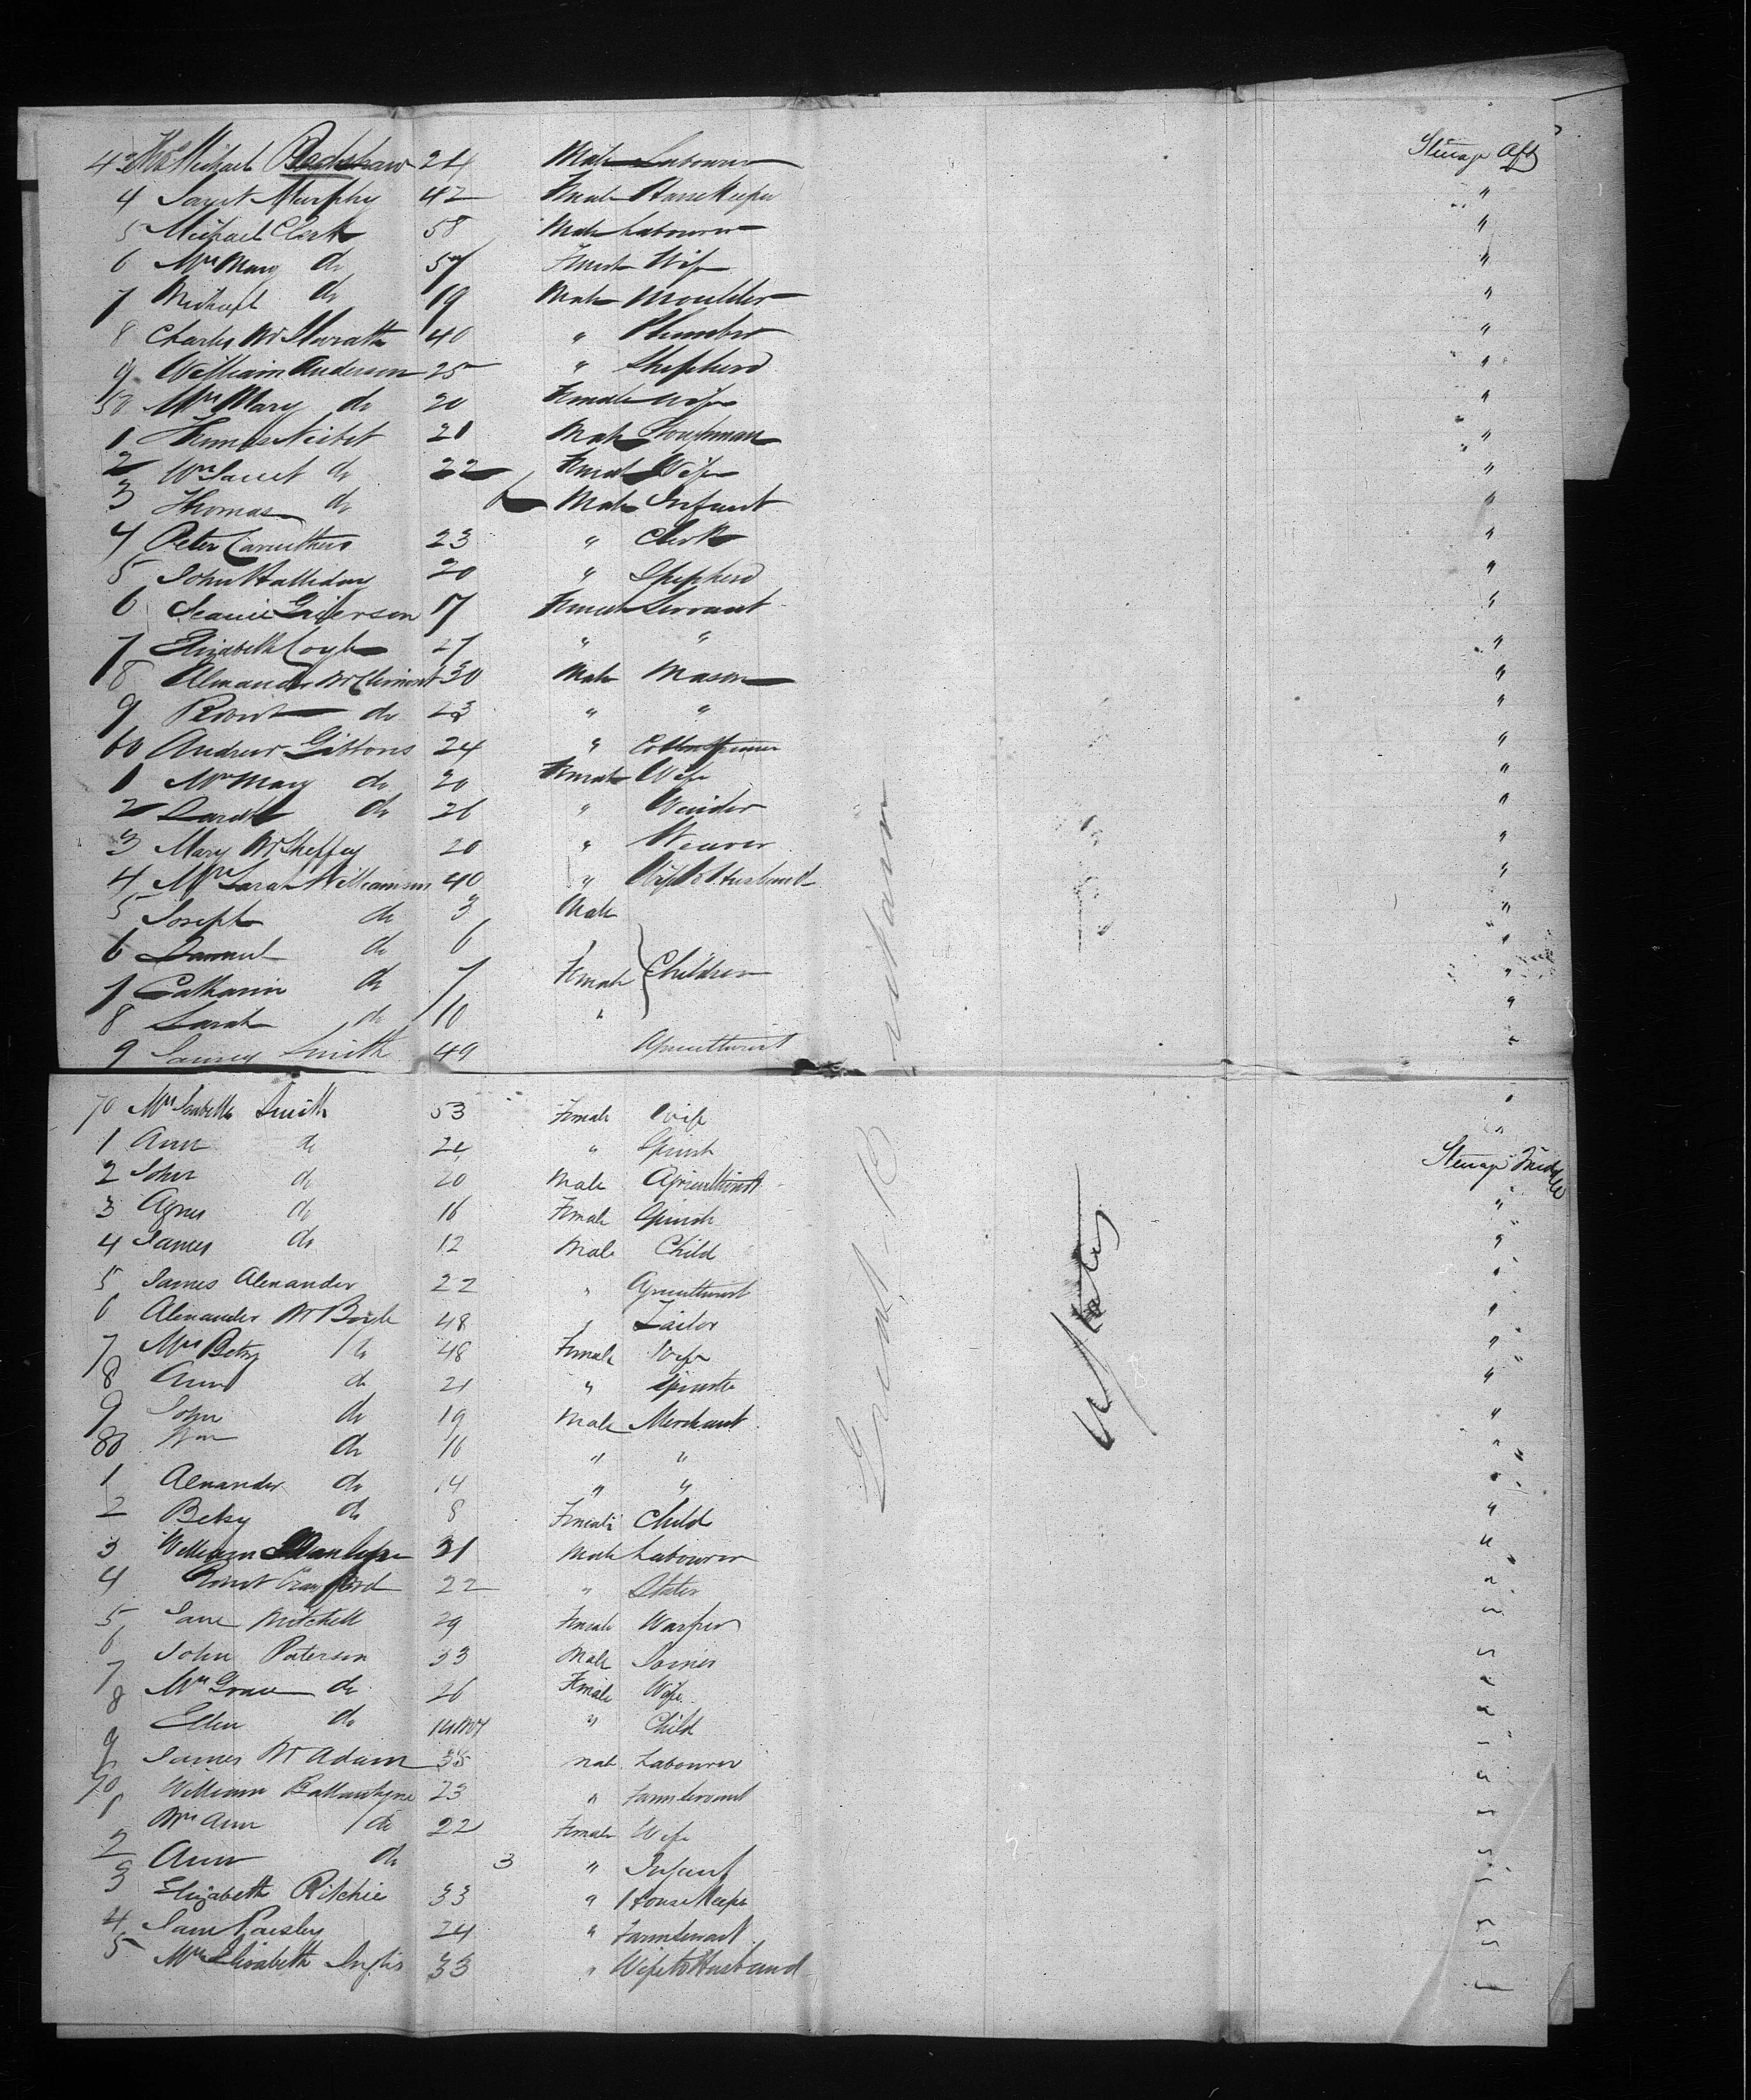 43 Michael Bradshaw 24 Male Labourer Steerage Aft
4 Janet Murphy 42 Female Housekeeper "
5 Michael Clark 58 Male Labourer "
6 Mrs Mary do 57 Female Wife "
7 Michael do 19 Male Moulder "
8 Charles McIlwrath 40 " Plumber "
9 William Anderson 25 " Shepherd "
50 Mrs Mary do 20 Female Wife "
1 Thomas Neibet 21 Male Ploughman "
2 Mrs Janet do 22 Female Wife "
3 Thomas do 6 Male Infant "
4 Peter Carruthers 23 " Clerk "
5 John Halliday 20 " Shepherd "
6 Jeanie Grierson 17 Female Servant "
7 Elizabeth Coyle 27 " " "
8 Alexander McClimont 30 Male Mason "
9 Robert do 23 " " "
60 Andrew Gibbons 24 " Cotton Spinner "
1 Mrs Mary do 20 Female Wife "
2 Sarah do 26 " Winder "
3 Mary McSheffey 20 " Weaver "
4 Mrs Sarah Williamson 40 " Wife to Husband "
5 Joseph do 3 Male "
6 Samuel do 6 " "
7 Catharine do 7 Female Children "
8 Sarah do 10 " "
9 James Smith 49 Agriculturist "
70 Mrs Isabella Smith 53 Female Wife "
1 Ann do 24 " Spinst "
2 John do 20 Male Agriculturist Steerage Middle
3 Agnes do 16 Female Spinst "
4 James do 12 Male Child "
5 James Alexander 22 " Agriculturist "
6 Alexander McBride 48 " Tailor "
7 Mrs Betsy do 48 Female Wife "
8 Ann do 21 " Spinster "
9 John do 19 Male Merchant "
80 Wm do 16 " " "
1 Alexander do 14 " " "
2 Betsy do 8 Female Child "
3 William 31 Male Labourer "
4 Robert Crawford 22 " Slater "
5 Jane Mitchell 29 Female Warper "
6 John Paterson 33 Male Joiner "
7 Mrs Grace do 26 Female Wife "
8 Ellen do " Child "
9 James McAdam 35 Male Labourer "
90 William Ballantyne 23 " Farm Servant "
1 Mrs Ann do 22 Female Wife "
2 Ann do 3 " Infant "
3 Elizabeth Ritchie 33 " Housekeeper "
4 Jane Paisley 24 " Farm Servant "
5 Mrs Elizabeth Inglis 33 " Wife to Husband "
Great Britain